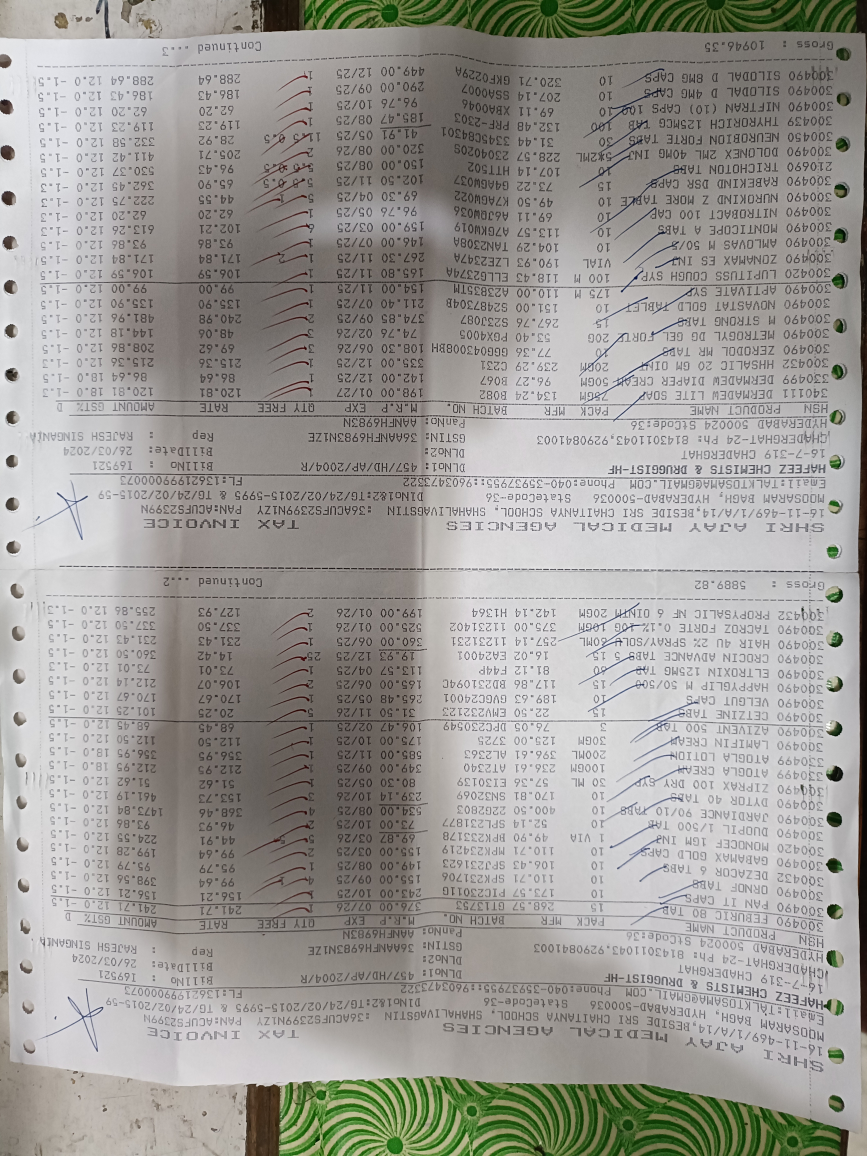 SHRI AJAY MEDICAL AGENCIES TAX INVOICE
16-11-469/1/A/14,BESIDE SRI CHAITANYA SCHOOL, SHAHALIVAGSTIN :36ACUFS2399N1ZY PAN:ACUFS2399N
MOOSARAM BAGH, HYDERABAD-500036 StateCode-36 DlNO1&2:TG/24/02/2015-5995 & TG/24/02/2015-59
Email:TALKTOSAMA@GMAIL.COM Phone:040-35937955::9603473322 FL:13621999000073
HAFEEZ CHEMISTS & DRUGGIST-HF DLNo1: 457/HD/AP/2004/R BillNO : I69521
16-7-319 CHADERGHAT DLNo2: BillDate: 26/03/2024
CHADERGHAT-24 Ph: 8143011043,9290841003 GSTIN: 36AANFH6983N1ZE Rep : RAJESH SINGANIA
HYDERABAD 500024 Stcode:36 PanNo: AANFH6983N
HSN PRODUCT NAME PACK MFR BATCH NO. M.R.P EXP QTY FREE RATE AMOUNT GST% D
300490 FEBURIC 80 TAB 15 268.57 GT13753 376.00 07/26 1 241.71 241.71 12.0 -1.5
300490 PAN IT CAPS 10 173.57 PIC23011G 243.00 10/25 1 156.21 156.21 12.0 -1.5
300490 ORNOF TABS 10 110.71 SPK231706 155.00 09/25 4 99.64 398.56 12.0 -1.5
300432 DEZACOR 6 TABS 10 106.43 SPJ231623 149.00 08/25 1 95.79 95.79 12.0 -1.5
300490 GABAMAX GOLD CAPS 10 110.71 MPK234219 155.00 03/25 2 99.64 199.28 12.0 -1.5
300420 MONOCEF 1GM INJ 1 VIA 49.90 BPK233178 69.87 03/26 5 44.91 224.55 12.0 -1.5
300490 DUOPIL 1/500 TAB 10 52.14 SPL231877 73.00 10/25 2 46.93 93.86 12.0 -1.5
300490 JARDIANCE 90/10 TABS 10 400.50 22G2803 534.00 08/25 4 368.46 1473.84 12.0 -1.5
300490 DYTOR 40 TABS 10 170.81 SN32069 239.14 10/26 3 153.73 461.19 12.0 -1.5
300490 ZIPRAX 100 DRY SYP 30 ML 57.36 EI30139 80.30 05/25 1 51.62 51.62 12.0 -1.5
330499 ATOGLA CREAM 100GM 236.61 AT2340 349.00 09/25 1 212.95 212.95 18.0 -1.5
330499 ATOGLA LOTION 200ML 396.61 AL2363 585.00 11/25 1 356.95 356.95 18.0 -1.5
300490 LAMIFIN CREAM 30GM 125.00 3725 175.00 10/25 1 112.50 112.50 12.0 -1.5
300490 AZIVENT 500 TAB 3 76.05 DPC230549 106.47 02/25 1 68.45 68.45 12.0 -1.5
300490 CETZINE TABS 15 22.50 EMV232123 31.50 11/26 5 20.25 101.25 12.0 -1.5
300490 VELGUT CAPS 10 189.63 GVGC24001 265.48 05/25 1 170.67 170.67 12.0 -1.5
300490 HAPPYGLIP M 50/500 15 117.86 BD231094C 165.00 06/25 2 106.07 212.14 12.0 -1.5
300490 ELTROXIN 125MG TAB 60 81.12 FA4P 113.57 04/25 1 73.01 73.01 12.0 -1.3
300490 CROCIN ADVANCE TABS 5 15 16.02 EA24001 19.93 12/25 25 14.42 360.50 12.0 -1.5
300490 HAIR 4U 2% SPRAY/SOLU 60ML 257.14 11231231 360.00 06/25 1 231.43 231.43 12.0 -1.5
300490 TACROZ FORTE 0.1% 10G 10GM 375.00 11231402 525.00 01/26 1 337.50 337.50 12.0 -1.5
300432 PROPYSALIC NF 6 OINTM 20GM 142.14 H1364 199.00 01/26 2 127.93 255.86 12.0 -1.3
Gross : 5889.82 Continued ...2
SHRI AJAY MEDICAL AGENCIES TAX INVOICE
16-11-469/1/A/14,BESIDE SRI CHAITANYA SCHOOL, SHAHALIVAGSTIN :36ACUFS2399N1ZY PAN:ACUFS2399N
MOOSARAM BAGH, HYDERABAD-500036 StateCode-36 DlNO1&2:TG/24/02/2015-5995 & TG/24/02/2015-59
Email:TALKTOSAMA@GMAIL.COM Phone:040-35937955::9603473322 FL:13621999000073
HAFEEZ CHEMISTS & DRUGGIST-HF DLNo1: 457/HD/AP/2004/R BillNO : I69521
16-7-319 CHADERGHAT DLNo2: BillDate: 26/03/2024
CHADERGHAT-24 Ph: 8143011043,9290841003 GSTIN: 36AANFH6983N1ZE Rep : RAJESH SINGANIA
HYDERABAD 500024 Stcode:36 PanNo: AANFH6983N
HSN PRODUCT NAME PACK MFR BATCH NO. M.R.P EXP QTY FREE RATE AMOUNT GST% D
340111 DERMADEW LITE SOAP 75GM 134.24 B082 198.00 01/27 1 120.81 120.81 18.0 -1.3
330499 DERMADEW DIAPER CREAM 50GM 96.27 B067 142.00 12/25 1 86.64 86.64 18.0 -1.5
300432 HHSALIC 20 GM OINT 20GM 239.29 C231 335.00 12/25 1 215.36 215.36 12.0 -1.5
300490 ZERODOL MR TABS 10 77.36 GG604300BH 108.30 06/26 3 69.62 208.86 12.0 -1.5
300490 METROGYL DG GEL FORTE 20G 53.40 PGX4005 74.76 02/26 3 48.06 144.18 12.0 -1.5
300490 M STRONG TABS 15 267.76 S23J087 374.85 09/25 2 240.98 481.96 12.0 -1.5
300490 NOVASTAT GOLD TABLET 10 151.00 S2487304B 211.40 07/25 1 135.90 135.90 12.0 -1.5
300490 APTIVATE SYP 175 M 110.00 A23B325TM 154.00 11/25 1 99.00 99.00 12.0 -1.5
300420 LUPITUSS COUGH SYP 100 M 118.43 ELLG2374 165.80 11/25 1 106.59 106.59 12.0 -1.5
300490 ZONAMAX ES INJ VIAL 190.93 LZE2347A 267.30 11/25 1 171.84 171.84 12.0 -1.5
300490 AMLOVAS M 50/5 10 104.29 TAN2308A 146.00 07/25 1 93.86 93.86 12.0 -1.5
300490 MONTICOPE A TABS 10 113.57 A76RK019 159.00 03/25 6 102.21 613.26 12.0 -1.5
300490 NITROBACT 100 CAP 10 69.11 A63QM036 96.76 05/25 1 62.20 62.20 12.0 -1.5
300490 NUROKIND Z MORE TABLE 10 49.50 A74GK022 69.30 04/25 5 44.55 222.75 12.0 -1.5
300490 RABEKIND DSR CAPS 15 73.22 A46GN037 102.50 11/25 5.5 0.5 65.90 362.45 12.0 -1.5
210690 TRICHOTON TABS 10 107.14 HTT502 150.00 08/25 96.43 530.37 12.0 -1.5
300490 DOLONEX 2ML 40MG INJ 5*2ML 228.57 2304020S 320.00 08/26 2 205.71 411.42 12.0 -1.5
300450 NEUROBION FORTE TABS 30 31.44 334C84301 41.91 05/25 11.5 0.5 28.92 332.58 12.0 -1.5
300439 THYRORICH 125MCG TAB 100 132.48 PRF-2303 185.47 08/25 1 119.23 119.23 12.0 -1.5
300490 NIFTRAN (10) CAPS 100 10 69.11 XBA0046 96.76 10/25 1 62.20 62.20 12.0 -1.5
300490 SILODAL D 4MG CAPS 10 207.14 SSA0007 290.00 09/25 1 186.43 186.43 12.0 -1.5
300490 SILODAL D 8MG CAPS 10 320.71 GKF0229A 449.00 12/25 1 288.64 288.64 12.0 -1.5
Gross : 10946.35 Continued ...3